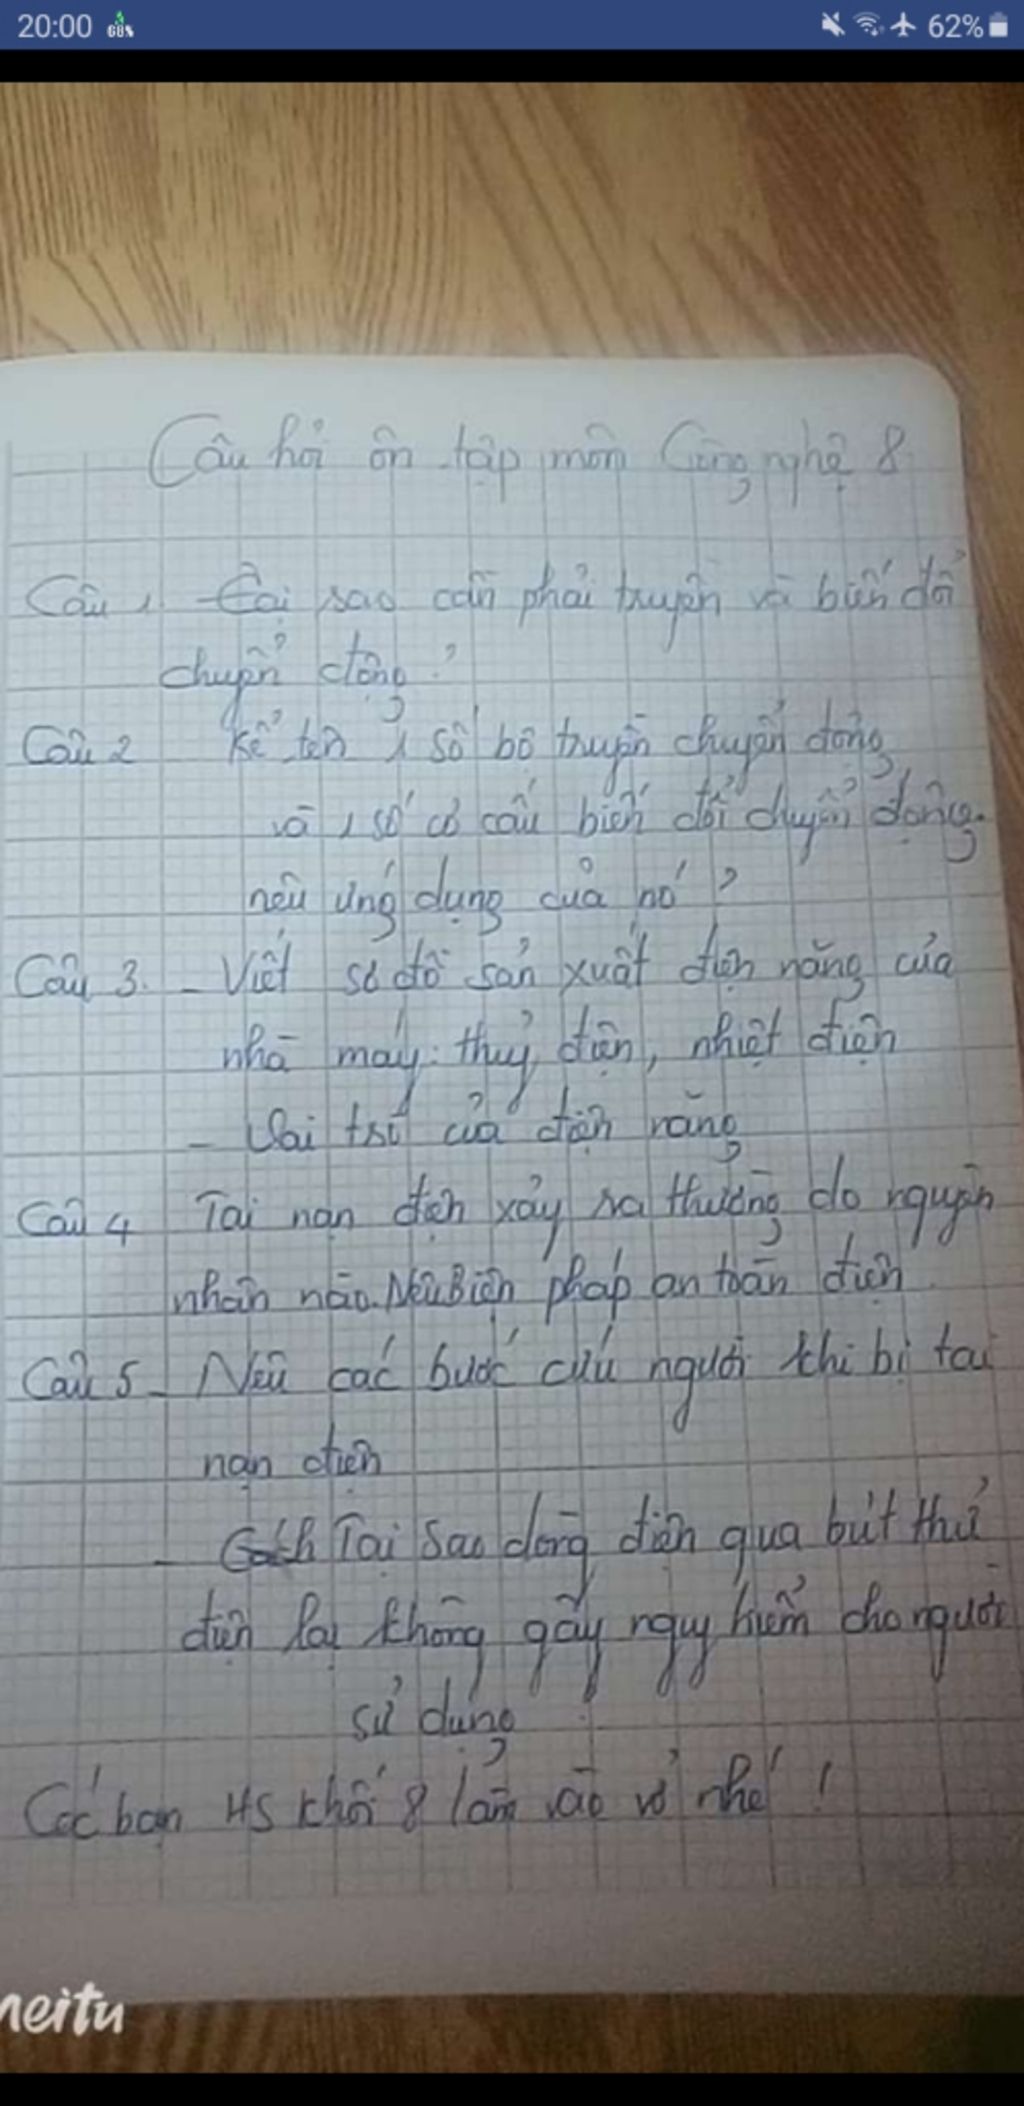 20:00 62%
Câu hỏi ôn tập môn Công nghệ 8
Câu 1 Tại sao cần phải truyền và biến đổi
chuyển động?
Câu 2 Kể tên 1 số bộ truyền chuyển động
và 1 số cơ cấu biến đổi chuyển động.
nêu ứng dụng của nó?
Câu 3. - Viết sơ đồ sản xuất điện năng của
nhà máy: thuỷ điện, nhiệt điện
- Vai trò của điện năng
Câu 4 Tai nạn điện xảy ra thường do nguyên
nhân nào. Nêu Biện pháp an toàn điện.
Câu 5 - Nêu các bước cứu người khi bị tai
nạn điện
- Tại Sao dòng điện qua bút thử
điện lại không gây nguy hiểm cho người
sử dụng
Các bạn HS khối 8 làm vào vở nhé!
meitu